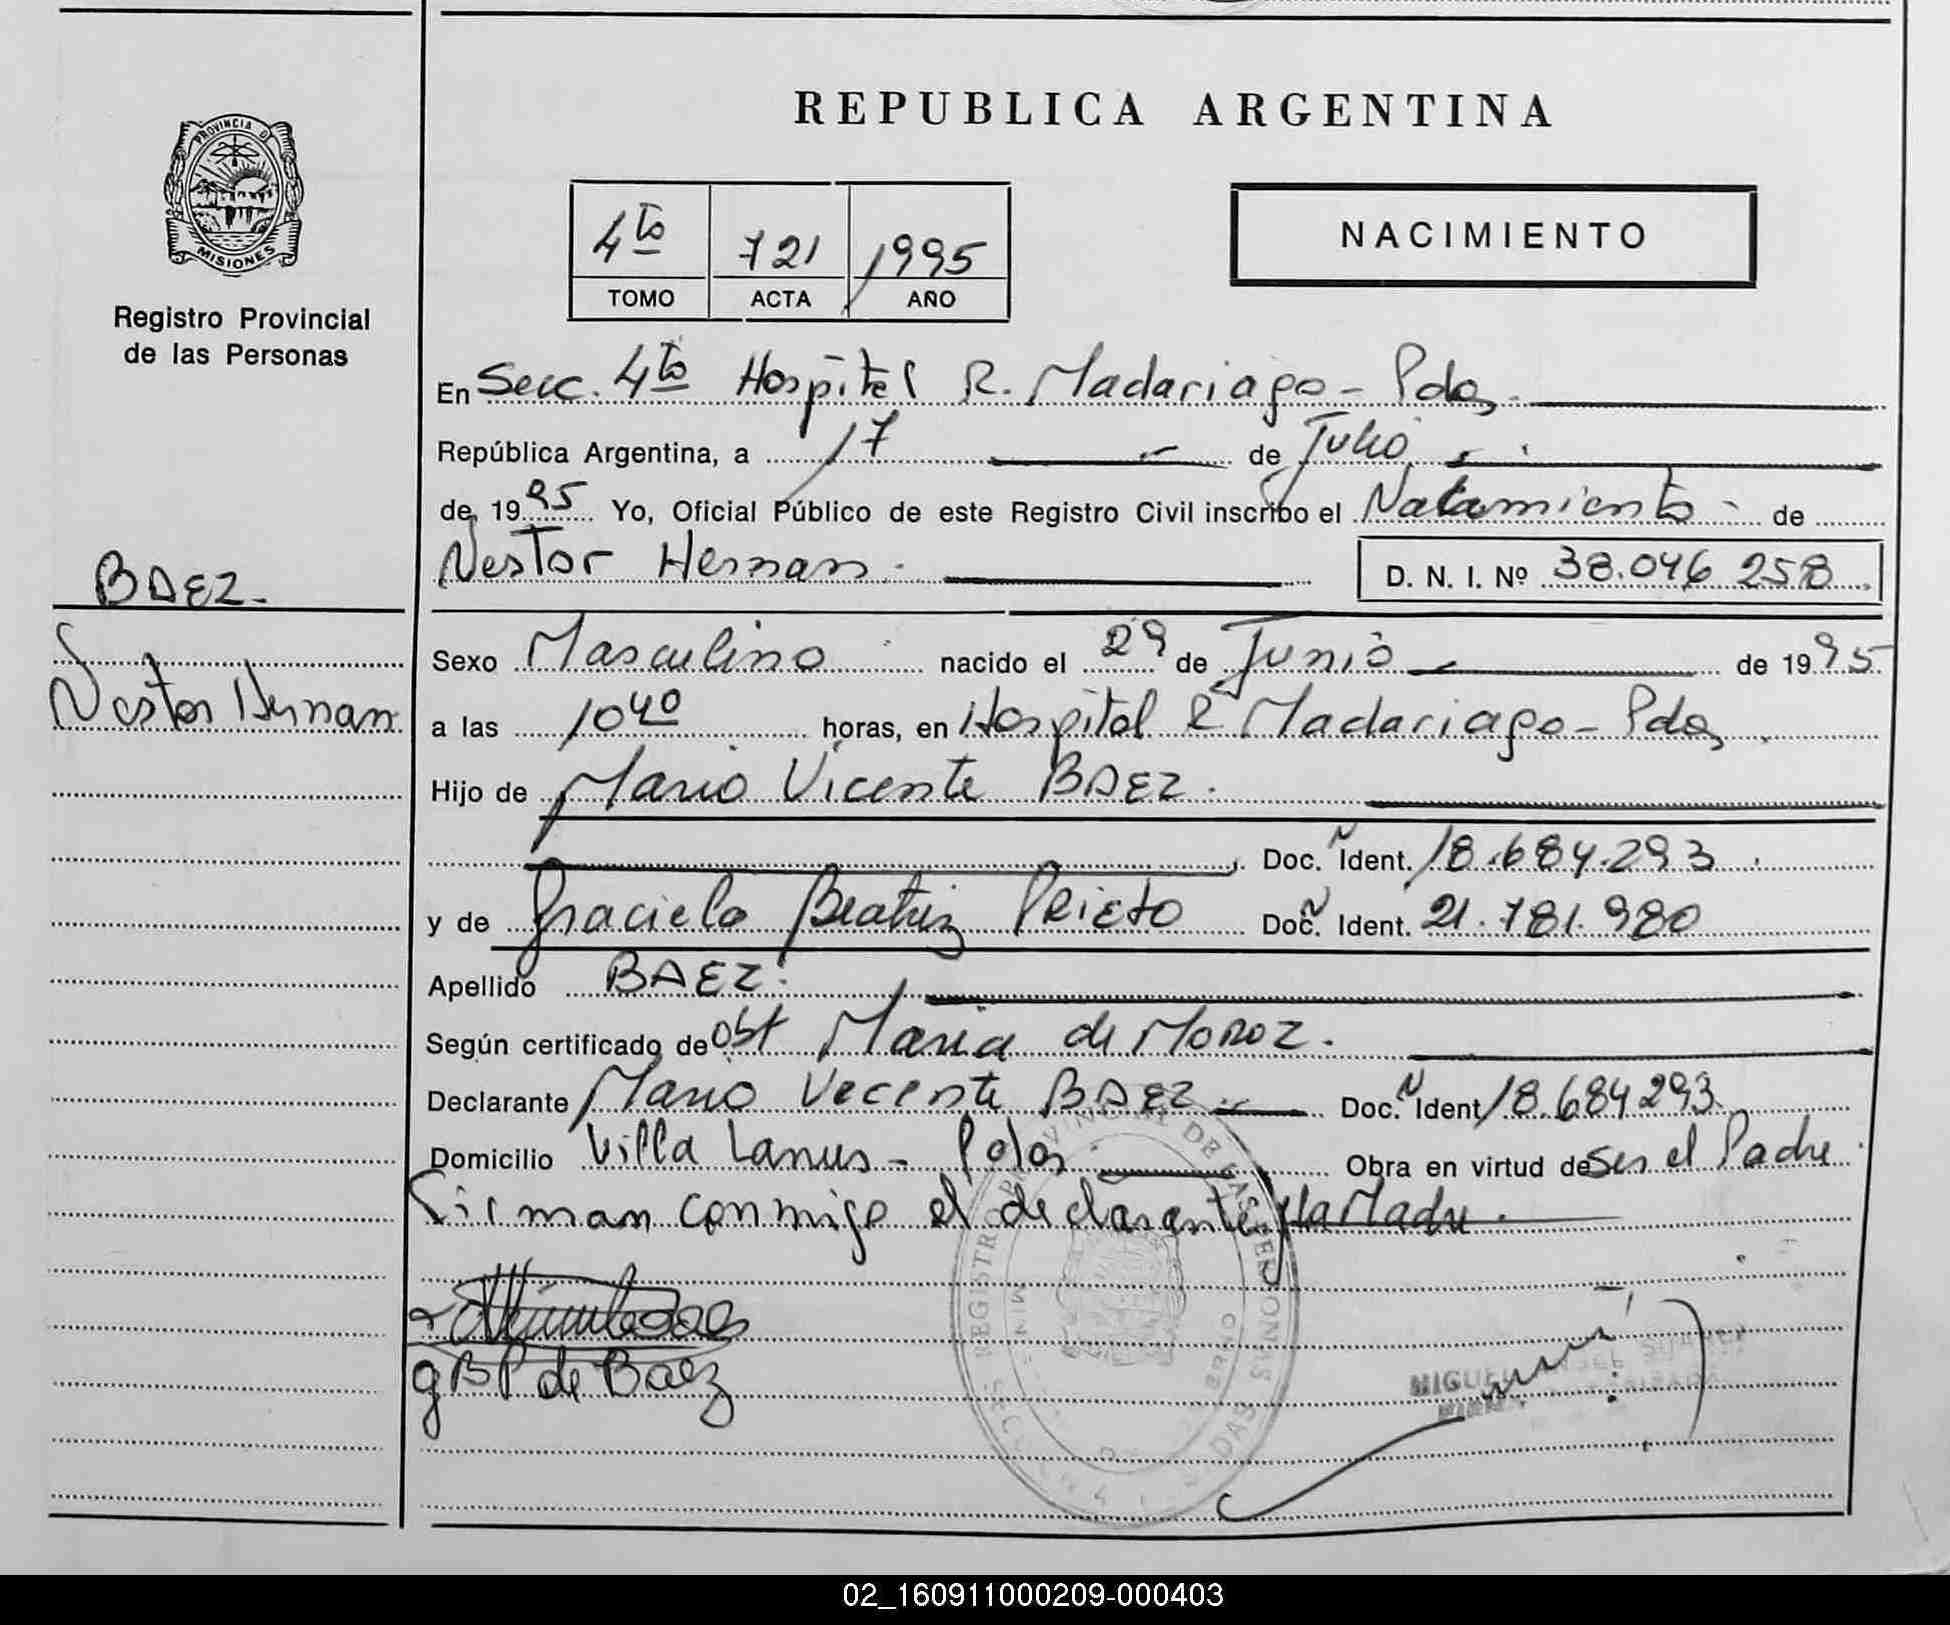 REPUBLICA ARGENTINA
PROVINCIA D
MISIONES
Registro Provincial
de las Personas
4to 721 1995
TOMO ACTA AÑO
NACIMIENTO
En Secc. 4to Hospital R. Madariaga - Pdas.
República Argentina, a 17 de Julio
de 1995 Yo, Oficial Público de este Registro Civil inscribo el Nacimiento de
Nestor Hernan. D. N. I. Nº 38.046 258
BAEZ.
Nestor Hernan
Sexo Masculino nacido el 29 de Junio de 1995
a las 1040 horas, en Hospital R Madariaga - Pdas
Hijo de Mario Vicente BAEZ.
Doc. N Ident. 18.684.293
y de Graciela Beatriz Prieto Doc. N Ident. 21.781.980
Apellido BAEZ.
Según certificado de Obst Maria de Moroz.
Declarante Mario Vecente BAEZ Doc. N Ident 18.684 293
Domicilio Villa Lanus - Pdas Obra en virtud de Ser el Padre
Firman conmigo el declarante y la Madre.
gBP de Baez
REGISTRO PROVINCIAL DE LAS PERSONAS
MIGUEL
02_160911000209-000403